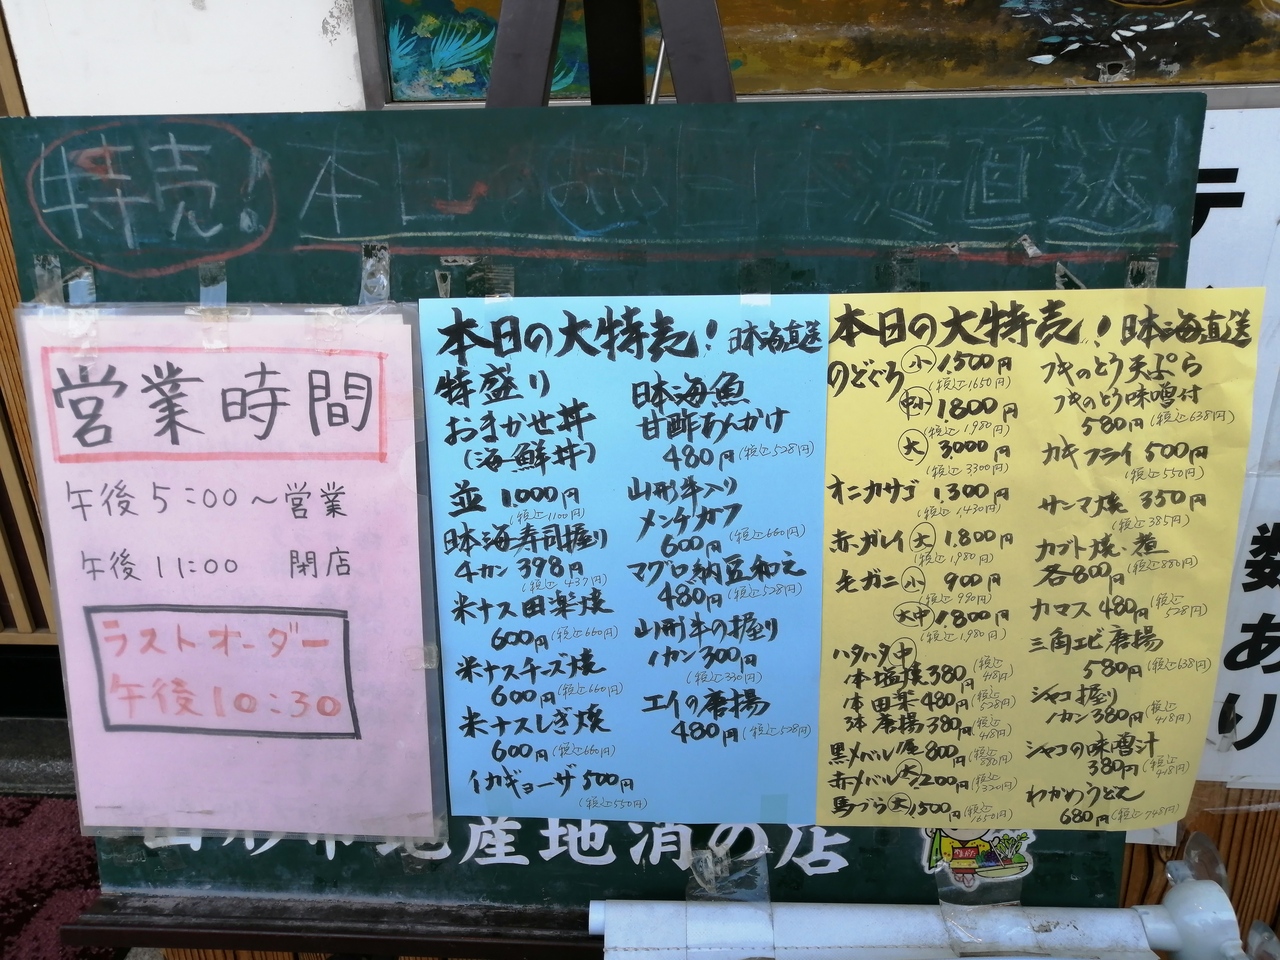 特売!
本日
日本海直送
営業時間
午後5:00～営業
午後11:00 閉店
ラストオーダー
午後10:30
本日の大特売! 日本海直送
特盛り
おまかせ丼
(海鮮丼)
並 1.000円
(税込1100円)
日本海寿司握り
4カン 398円
(税込437円)
米ナス田楽焼
600円(税込660円)
米ナスチーズ焼
600円(税込660円)
米ナスしぎ焼
600円(税込660円)
イカギョーザ500円
(税込550円)
日本海魚
甘酢あんかけ
480円(税込528円)
山形牛入り
メンチカツ
600円(税込660円)
マグロ納豆和え
480円(税込528円)
山形牛の握り
1カン300円
(税込330円)
エイの唐揚
480円(税込528円)
本日の大特売! 日本海直送
のどぐろ小1.500円
(税込1650円)
中小1.800円
(税込1,980円)
大 3000円
(税込3300円)
オニカサゴ 1.300円
(税込1,430円)
赤ガレイ大1.800円
(税込1,980円)
毛ガニ小 900円
(税込990円)
大中1.800円
(税込1,980円)
ハタハタ中
1本塩焼380円(税込418円)
1本田楽480円(税込528円)
3本唐揚380円(税込418円)
黒メバル 800円(税込880円)
赤メバル大1.200円(税込1320円)
馬づら大1500円(税込1650円)
フキのとう天ぷら
フキのとう味噌付
580円(税込638円)
カキフライ500円
(税込550円)
サンマ焼 350円
(税込385円)
カブト焼・煮
各800円(税込880円)
カマス480円(税込528円)
三角エビ唐揚
580円(税込638円)
シャコ握り
1カン380円(税込418円)
シャコの味噌汁
380円(税込418円)
わかめうどん
680円(税込748円)
地産地消の店
テ
数あり